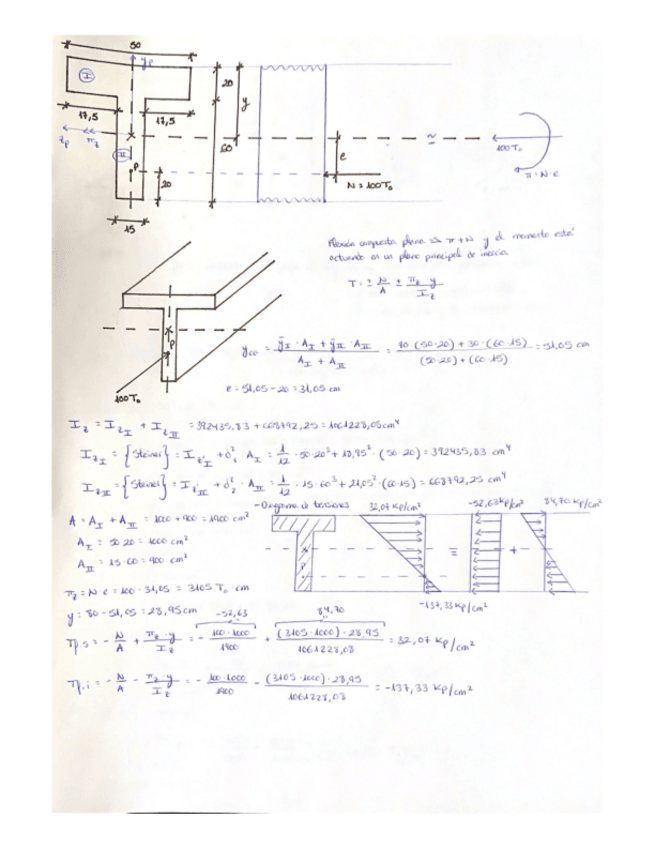 50
yp
I
20
y
17,5
17,5
zp
Mz
II
60
e
≈
100 To
M = N·e
P
20
N = 100 To
15
Flexión compuesta plana M + N y el momento está
actuando en un plano principal de inercia
T = ± N/A ± Mz·y/Iz
P
100 To
ycg = (ȳI · AI + ȳII · AII)/(AI + AII) = (70·(50·20) + 30·(60·15))/((50·20) + (60·15)) = 51,05 cm
e = 51,05 - 20 = 31,05 cm
Iz = IzI + IzII = 392435,83 + 668792,25 = 1061228,08 cm⁴
IzI = {Steiner} = Iz'I + d₁² · AI = 1/12 · 50·20³ + 18,95² · (50·20) = 392435,83 cm⁴
IzII = {Steiner} = Iz'II + d₂² · AII = 1/12 · 15·60³ + 21,05² · (60·15) = 668792,25 cm⁴
A = AI + AII = 1000 + 900 = 1900 cm²
AI = 50·20 = 1000 cm²
AII = 15·60 = 900 cm²
- Diagrama de tensiones
32,07 Kp/cm²
-52,63 Kp/cm²
84,70 Kp/cm²
=
+
-137,33 Kp/cm²
Mz = N·e = 100·31,05 = 3105 To cm
y = 80 - 51,05 = 28,95 cm
-52,63
84,70
Tp.s = - N/A + Mz·y/Iz = - 100·1000/1900 + (3105·1000)·28,95/1061228,08 = 32,07 Kp/cm²
Tp.i = - N/A - Mz·y/Iz = - 100·1000/1900 - (3105·1000)·28,95/1061228,08 = -137,33 Kp/cm²